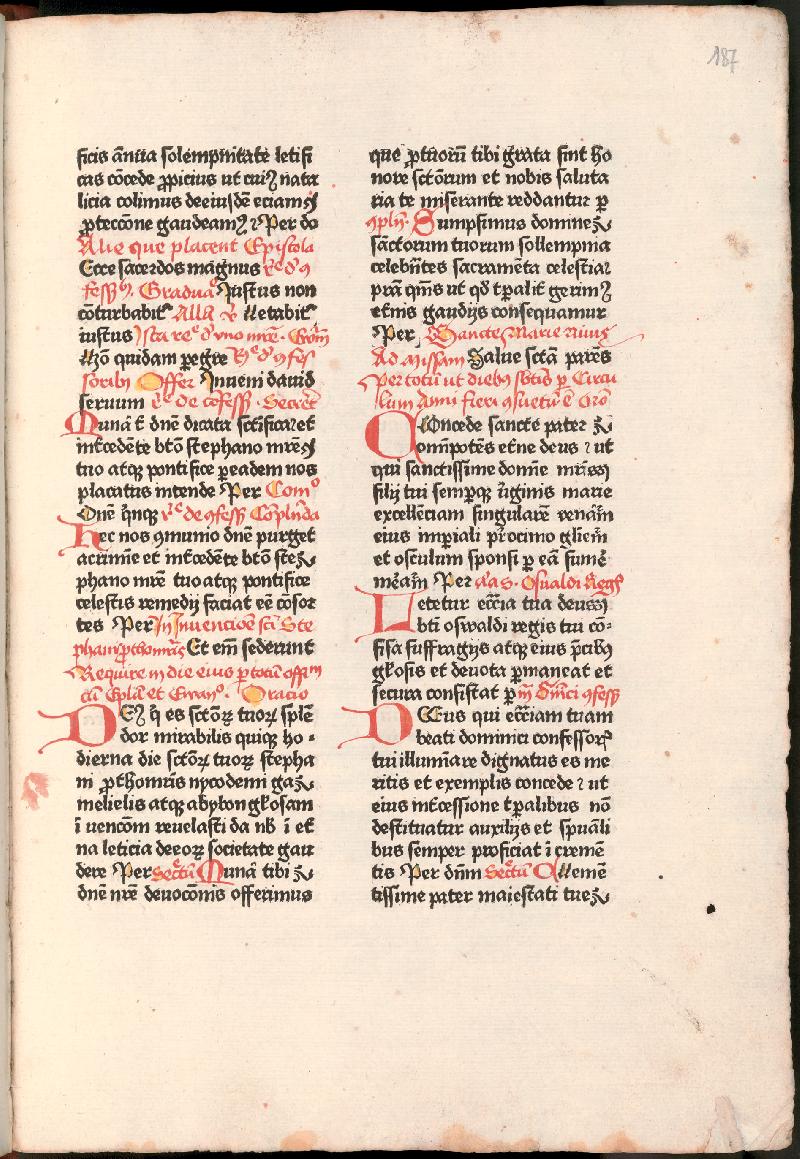 187
ficis ānua solempnitate letifi
cas cōcede ꝓpicius ut cuiꝰ nata
licia colimus de eiusdē eciam
ꝓteccōne gaudeamꝰ Per do
Alie que placent Epistola
Ecce sacerdos magnus
Gradua Justus non
cōturbabit᷑ Alla Letabit᷑
iustus Ista
quidam pegre
Offer Inueni dauid
seruum de cōfess Secret
Munā t̄ dn̄e dicata sctīfica et
int̄cedēte btō stephano mr̄e
tuo atqꝫ pontifice ꝑ eadem nos
placatus intende Per Com
de ꝯfess Cōplnda
Hec nos ꝯmunio dn̄e purget
a crimīe et int̄cedēte btō ste
phano mr̄e tuo atqꝫ pontifice
celestis remedij faciat eē cōsor
tes Per In Inuencioē sct̄i Ste
phani ꝓthomr̄is Et em̄ sederunt
Require in die eius ꝑ totū offm
cū Epl̄a et Ewan Oratio
DEꝰ q̄ es sctōꝝ tuoꝝ splē
dor mirabilis quiqꝫ ho
dierna die sctōꝝ tuoꝝ stepha
ni ꝓthomr̄is nycodemi ga
melielis atqꝫ abybon gl̄osam
ī uencōm reuelasti da nb̄ ī et
na leticia de eoꝝ societate gau
dere Per Sectū Munā tibi
dn̄e nr̄e deuocōnis offerimus
que ꝓ tuorū tibi grata sint ho
nore sctōrum et nobis saluta
ria te miserante reddantur ꝑ
ꝯpln̄ Sumpsimus domine
sanctorum tuorum sollempnia
celebrn̄tes sacramēta celestia
prā qm̄s ut qd̄ tꝑalit gerimꝰ
et̄nis gaudijs consequamur
Per Sancte Marie niuis
Ad Missam Salue sctā parēs
Per totū ut diebꝰ sbtīs ꝑ Circu
lum Anni fieri ꝯsuetū ē Oro
COncede sancte pater
omīpotēs et̄ne deus ut
qui sanctissime domīe mr̄is
filij tui semperqꝫ v̄ginis marie
excellēciam singularē
eius imꝑiali ꝓximo gl̄iem̄
et osculum sponsi ꝑ eā sumē
Per Osualdi Regis
LEtetur ecc̄ia tua deus
btī oswaldi regis tui cō
fisa suffragijs atqꝫ eius p̄cibꝰ
gl̄osis et deuota ꝑmaneat et
secura consistat ꝑ Dn̄ici ꝯfess
DEus qui ecc̄iam tuam
beati dominici confessorꝭ
tui illumīare dignatus es me
ritis et exemplis concede ut
eius int̄cessione tꝑalibus nō
destituatur auxilijs et spūali
bus semper proficiat ī cremē
tis Per dn̄m Sectū Clemē
tissime pater maiestati tue